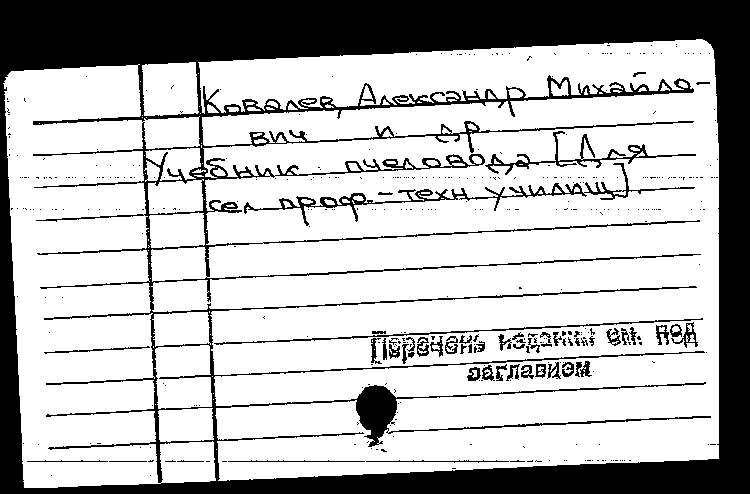 Ковалев, Александр Михайло-
вич и др
Учебник пчеловода [Для
сел проф.-техн училищ].
Перечень изданий см. под
заглавием